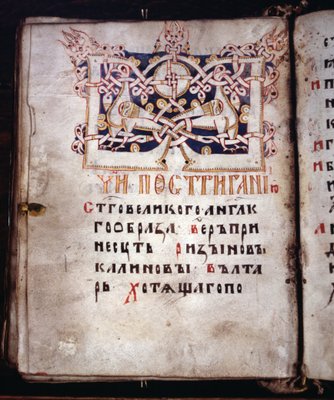 ЧИ ПОСТРИГАНІЮ
СТГОВЕЛИКОГОАНГЛК
ГООБРАЗА ВЕРЪПРИ
НЕСУТЬ РИЗЫНОВЪ
КАЛИНОВЫ ВЪЛТА
РЬ ХОТѦЩАГОПО